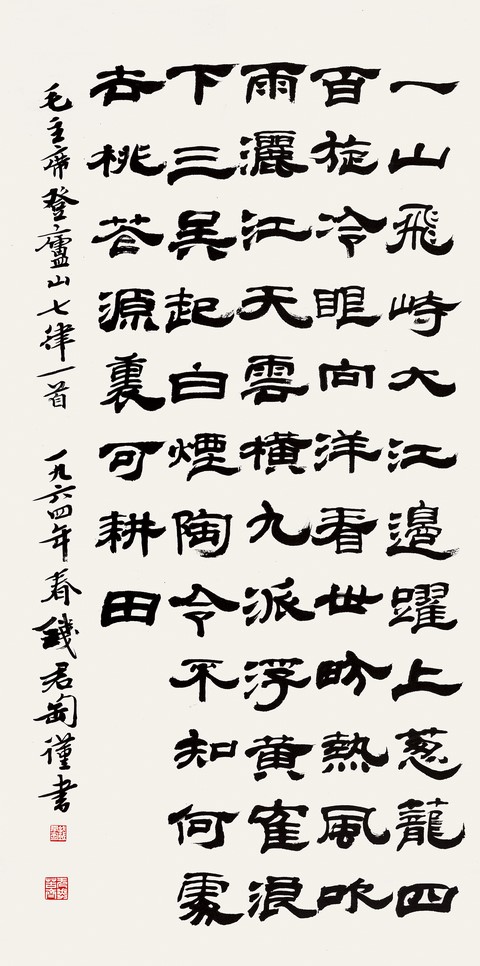 一山飛峙大江邊躍上葱蘢四
百旋冷眼向洋看世畍熱風吹
雨灑江天雲橫九派浮黃隺浪
下三吳起白煙陶令不知何處
去桃花源裏可耕田
毛主席登廬山七律一首 一九六四年春錢君匋謹書